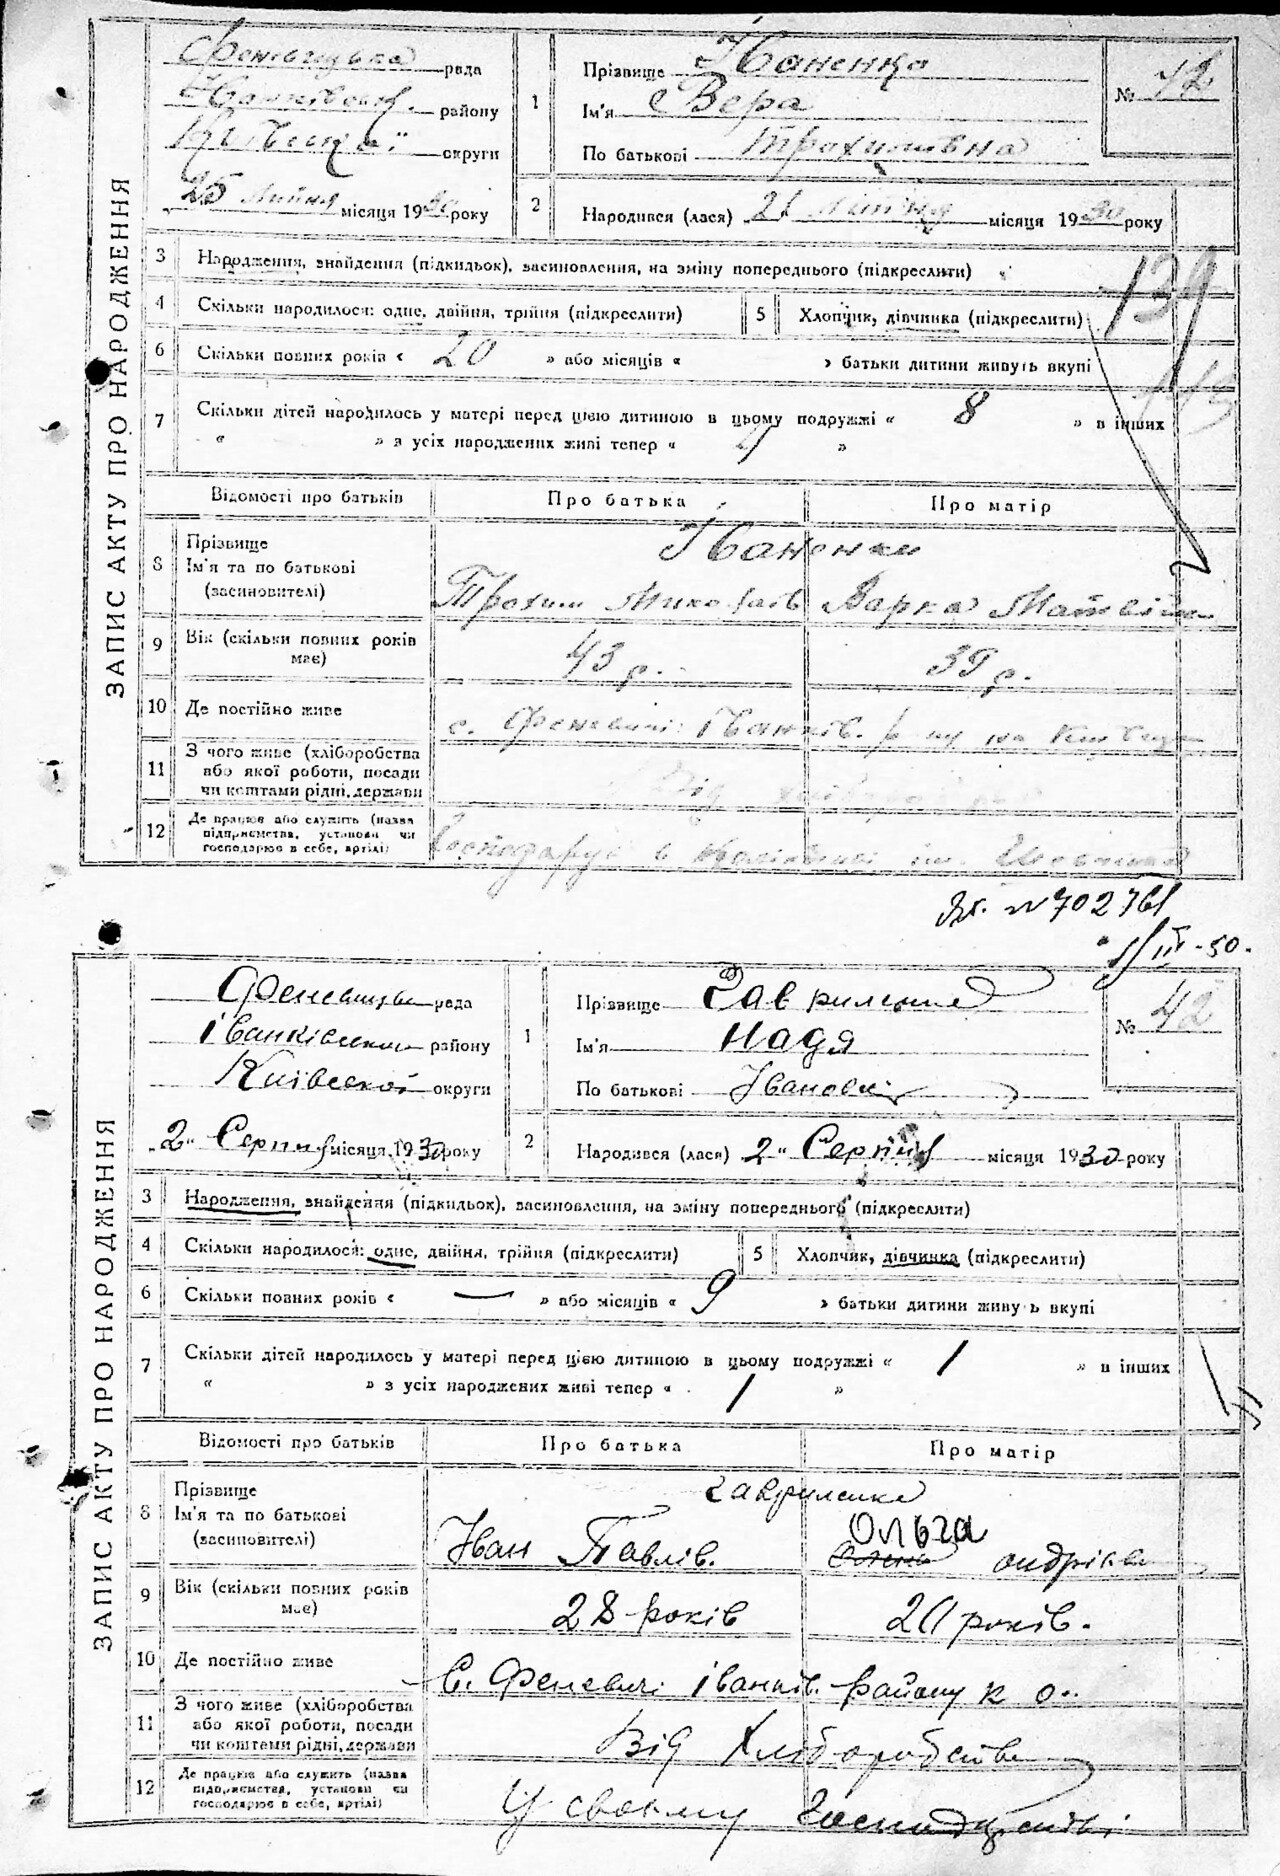 ЗАПИС АКТУ ПРО НАРОДЖЕННЯ
Феневицька рада
району
округи
25 Липня місяця 1930 року
1
Прізвище Іваненко
Ім'я Вера
По батькові Трохимівна
№ 42
2
Народився (лася) 21 Липня місяця 1930 року
139
3 Народження, знайдення (підкидьок), засиновлення, на зміну попереднього (підкреслити)
4 Скільки народилося: одне, двійня, трійня (підкреслити) 5 Хлопчик, дівчинка (підкреслити)
6 Скільки повних років « 20 » або місяців « » батьки дитини живуть вкупі
7 Скільки дітей народилось у матері перед цією дитиною в цьому подружжі « 8 » в інших
« » з усіх народжених живі тепер « »
Відомості про батьків Про батька Про матір
8 Прізвище
Ім'я та по батькові
(засиновителі)
Іваненки
Трохим Миколаїв Варка Матвіїв
9 Вік (скільки повних років має) 43 р. 39 р.
10 Де постійно живе с. Феневичі Іванків. р-ну на Київщ
11 З чого живе (хліборобства або якої роботи, посади чи коштами рідні, держави Від
12 Де працює або служить (назва підприємства, установи чи господарює в себе, артілі)
Господарує в
№702761
III-50.
ЗАПИС АКТУ ПРО НАРОДЖЕННЯ
Феневицька рада
Іванківського району
Київської округи
„2" Серпня місяця 1930 року
1
Прізвище Гавриленко
Ім'я Надя
По батькові Івановна
№ 42
2
Народився (лася) 2" Серпня місяця 1930 року
3 Народження, знайдення (підкидьок), засиновлення, на зміну попереднього (підкреслити)
4 Скільки народилося: одне, двійня, трійня (підкреслити) 5 Хлопчик, дівчинка (підкреслити)
6 Скільки повних років « — » або місяців « 9 » батьки дитини живуь вкупі
7 Скільки дітей народилось у матері перед цією дитиною в цьому подружжі « 1 » в інших
« » з усіх народжених живі тепер « 1 »
Відомості про батьків Про батька Про матір
8 Прізвище
Ім'я та по батькові
(засиновителі)
Гавриленко
Ольга
Іван Павлів. Андріїва
9 Вік (скільки повних років має) 28 років 20 років.
10 Де постійно живе с. Феневичі Іванків. району К о.
11 З чого живе (хліборобства або якої роботи, посади чи коштами рідні, держави Від Хліборобства
12 Де працює або служить (назва підприємства, установи чи господарює в себе, артілі)
У своєму Господарстві